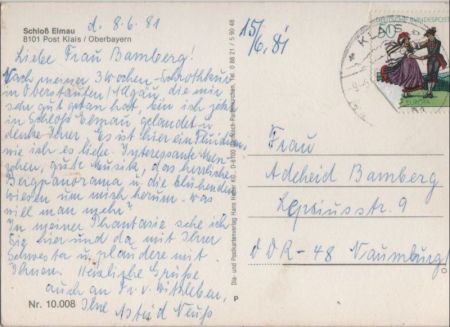 Schloß Elmau
8101 Post Klais / Oberbayern
d. 8.6.81
Liebe Frau Bamberg!
Nach meiner 3 Wochen-Schrothkur
in Oberstaufen/Allgäu, die mir
sehr gut getan hat, bin ich jetzt
in Schloß Elmau gelandet u.
denke Ihrer. Es ist hier ein Fluidum
wie ich es liebe. Interessante Men-
schen, gute Musik, das herrliche
Bergpanorama u. die blühenden
Wiesen um mich herum. was
will man mehr!
In meiner Phantasie sehe ich
Sie hier und da mit Ihrer
Schwester u. plaudere mit
Ihnen. Herzliche Grüße
auch an Fr. v. Witzleben,
Ihre Astrid Neuß
Nr. 10.008
15/6.81
Dia- und Postkartenverlag Hans Huber KG
P
KLAIS
DEUTSCHE BUNDESPOST
50
EUROPA
Frau
Adelheid Bamberg
Lepsiusstr. 9
DDR-48 Naumburg/